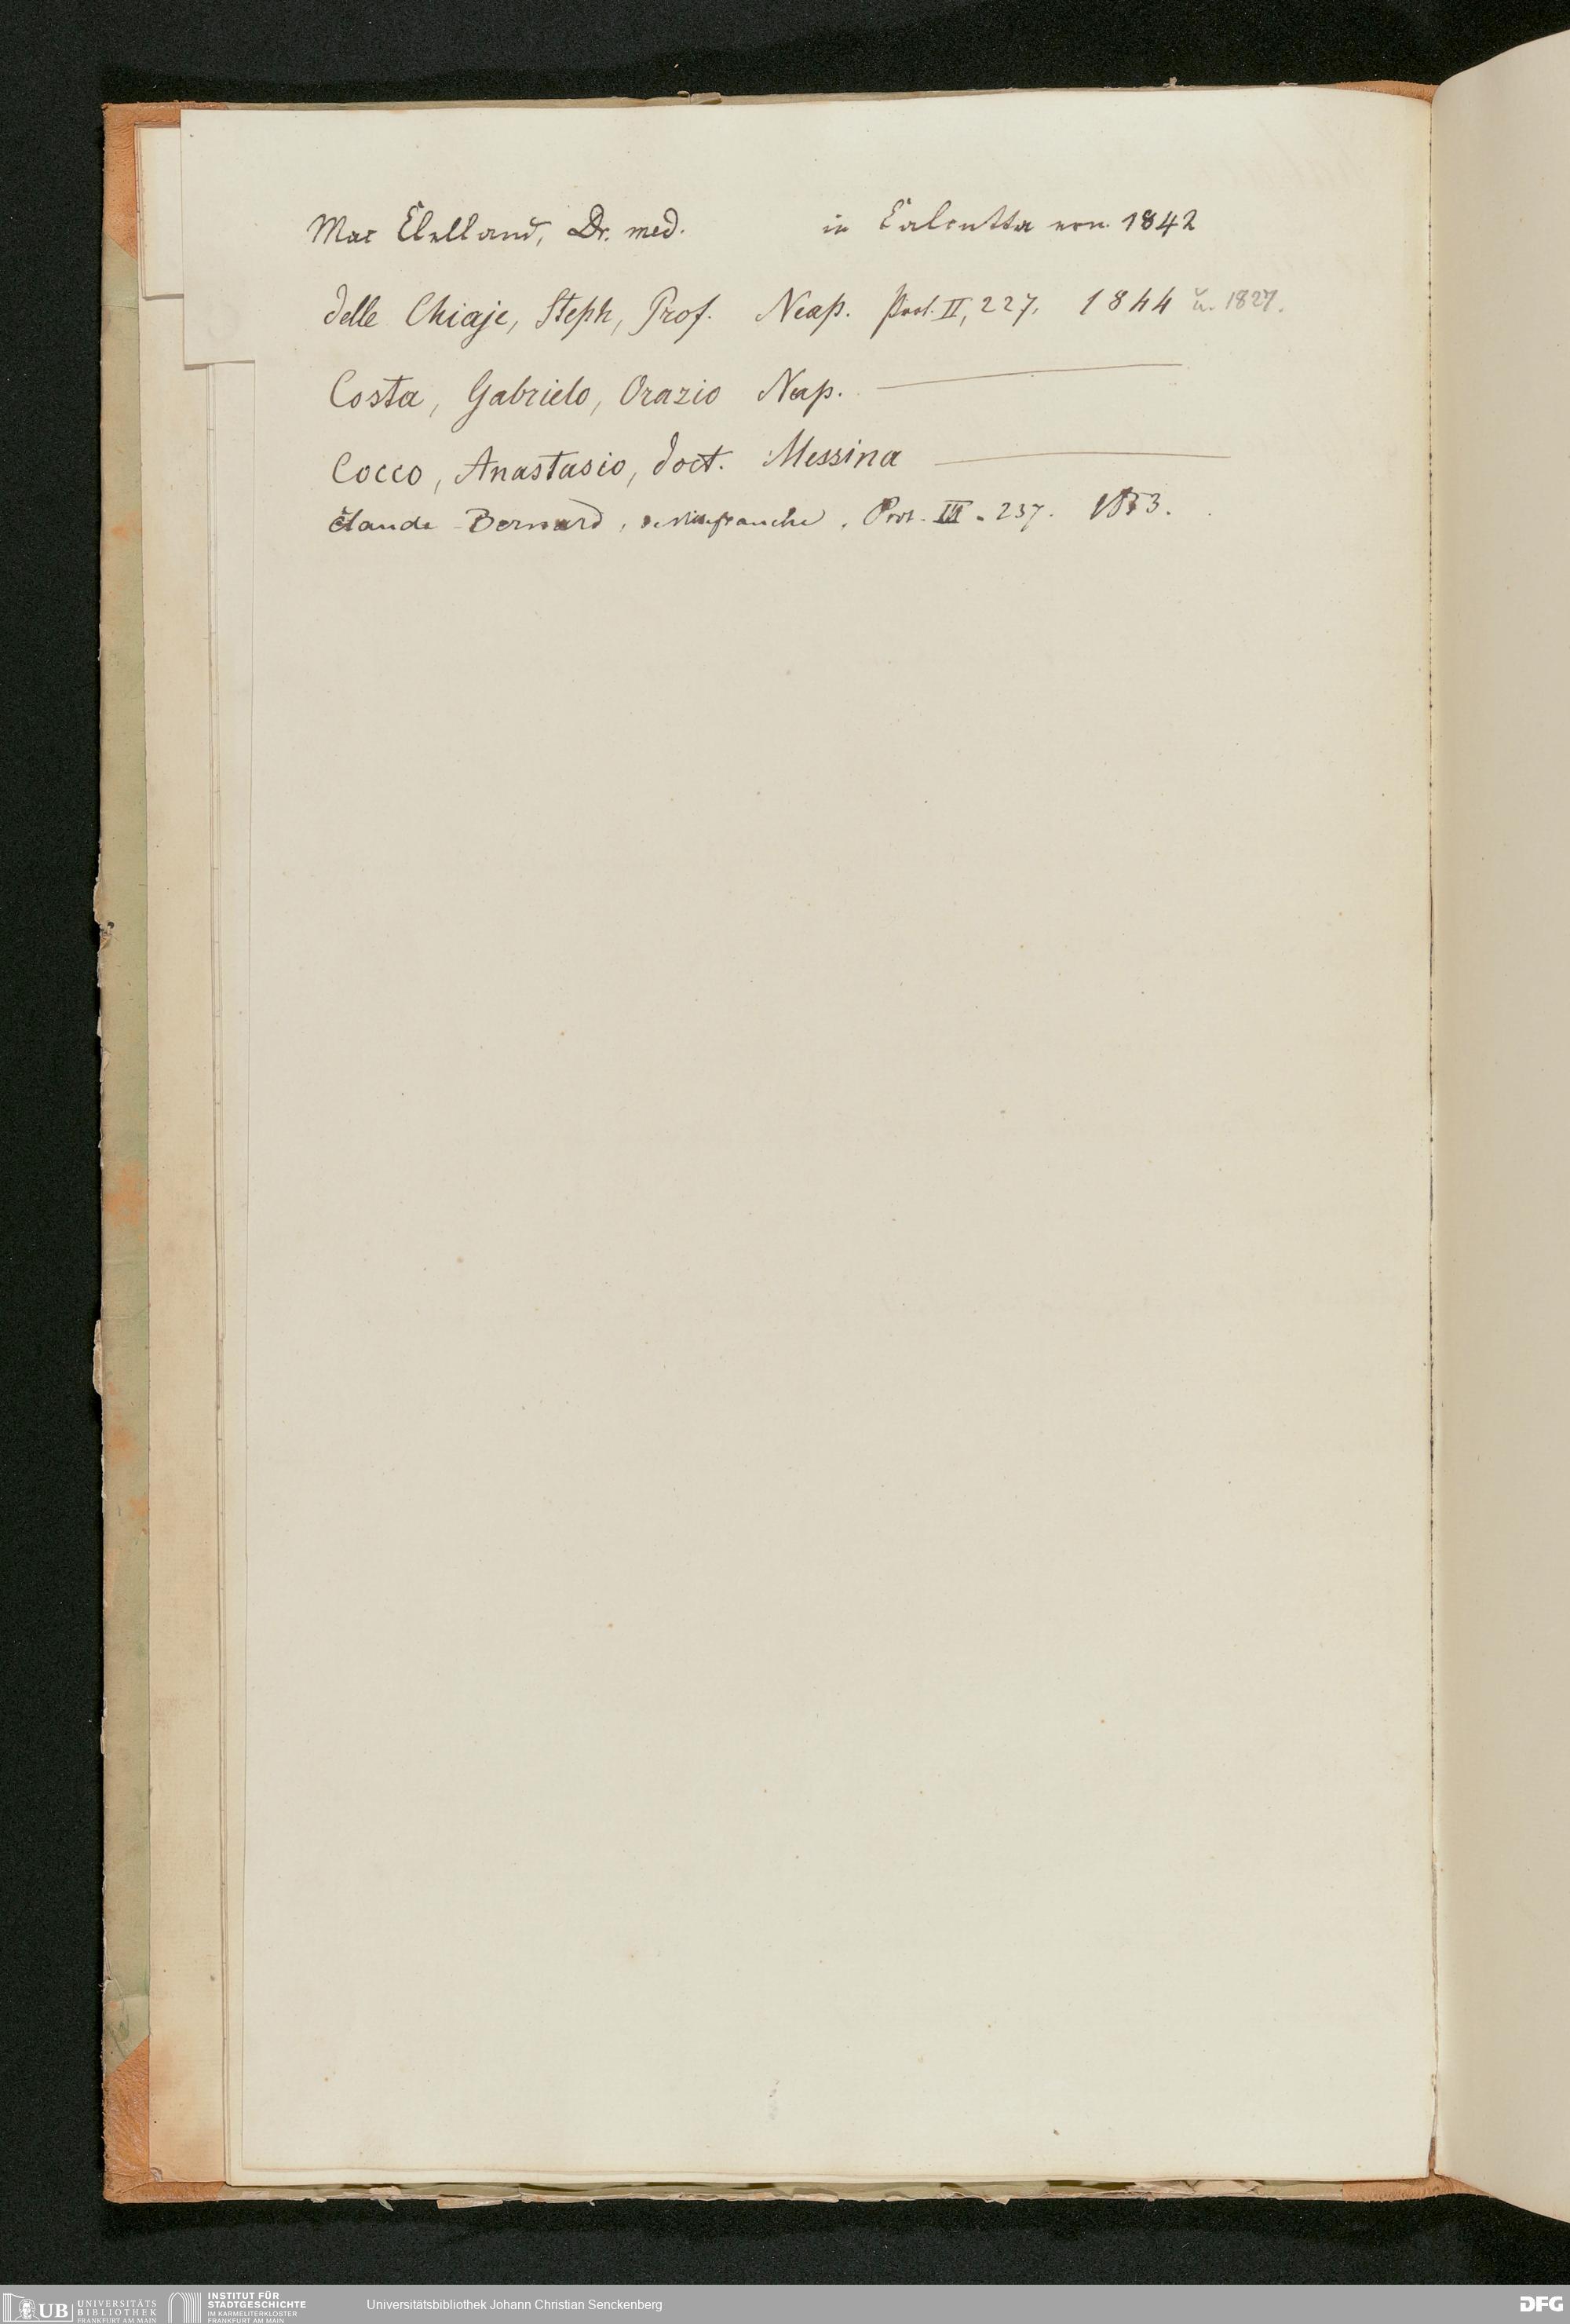 Mac Clelland, Dr. med. in Calcutta von 1842
delle Chiaje, Steph, Prof. Neap. Prot. II, 227. 1844 u. 1827.
Costa, Gabrielo, Orazio Neap.
Cocco, Anastasio, doct. Messina
Claude Bernard, de Villefranche, Prot. III. 237. 1853.
UB UNIVERSITÄTS BIBLIOTHEK FRANKFURT AM MAIN
INSTITUT FÜR STADTGESCHICHTE IM KARMELITERKLOSTER FRANKFURT AM MAIN
Universitätsbibliothek Johann Christian Senckenberg
DFG